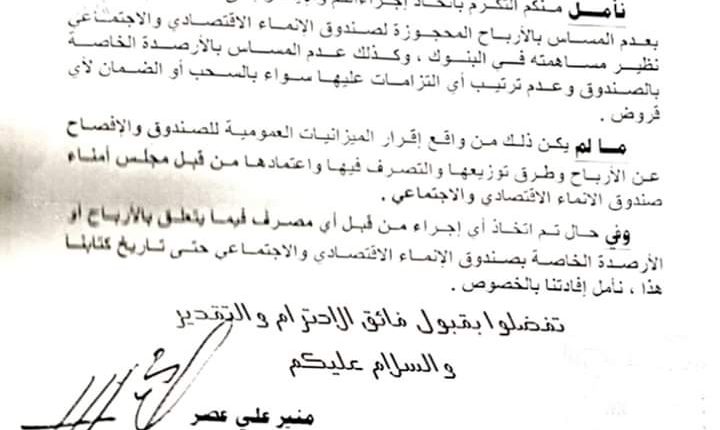 نأمـل منكم التكرم باتخاذ
بعدم المساس بالأرباح المحجوزة لصندوق الإنماء الاقتصادي والاجتماعي
نظير مساهمته في البنوك ، وكذلك عدم المساس بالأرصدة الخاصة
بالصندوق وعدم ترتيب أي التزامات عليها سواء بالسحب أو الضمان لأي
قروض .
ما لم يكن ذلك من واقع إقرار الميزانيات العمومية للصندوق والإفصاح
عن الأرباح وطرق توزيعها والتصرف فيها واعتمادها من قبل مجلس أمناء
صندوق الانماء الاقتصادي والاجتماعي .
وفي حال تم اتخاذ أي إجراء من قبل أي مصرف فيما يتعلق بالأرباح أو
الأرصدة الخاصة بصندوق الإنماء الاقتصادي والاجتماعي حتى تاريخ كتابنا
هذا ، نأمل إفادتنا بالخصوص .
تفضلوا بقبول فائق الاحترام والتقدير
والسلام عليكم
منير علي عصر